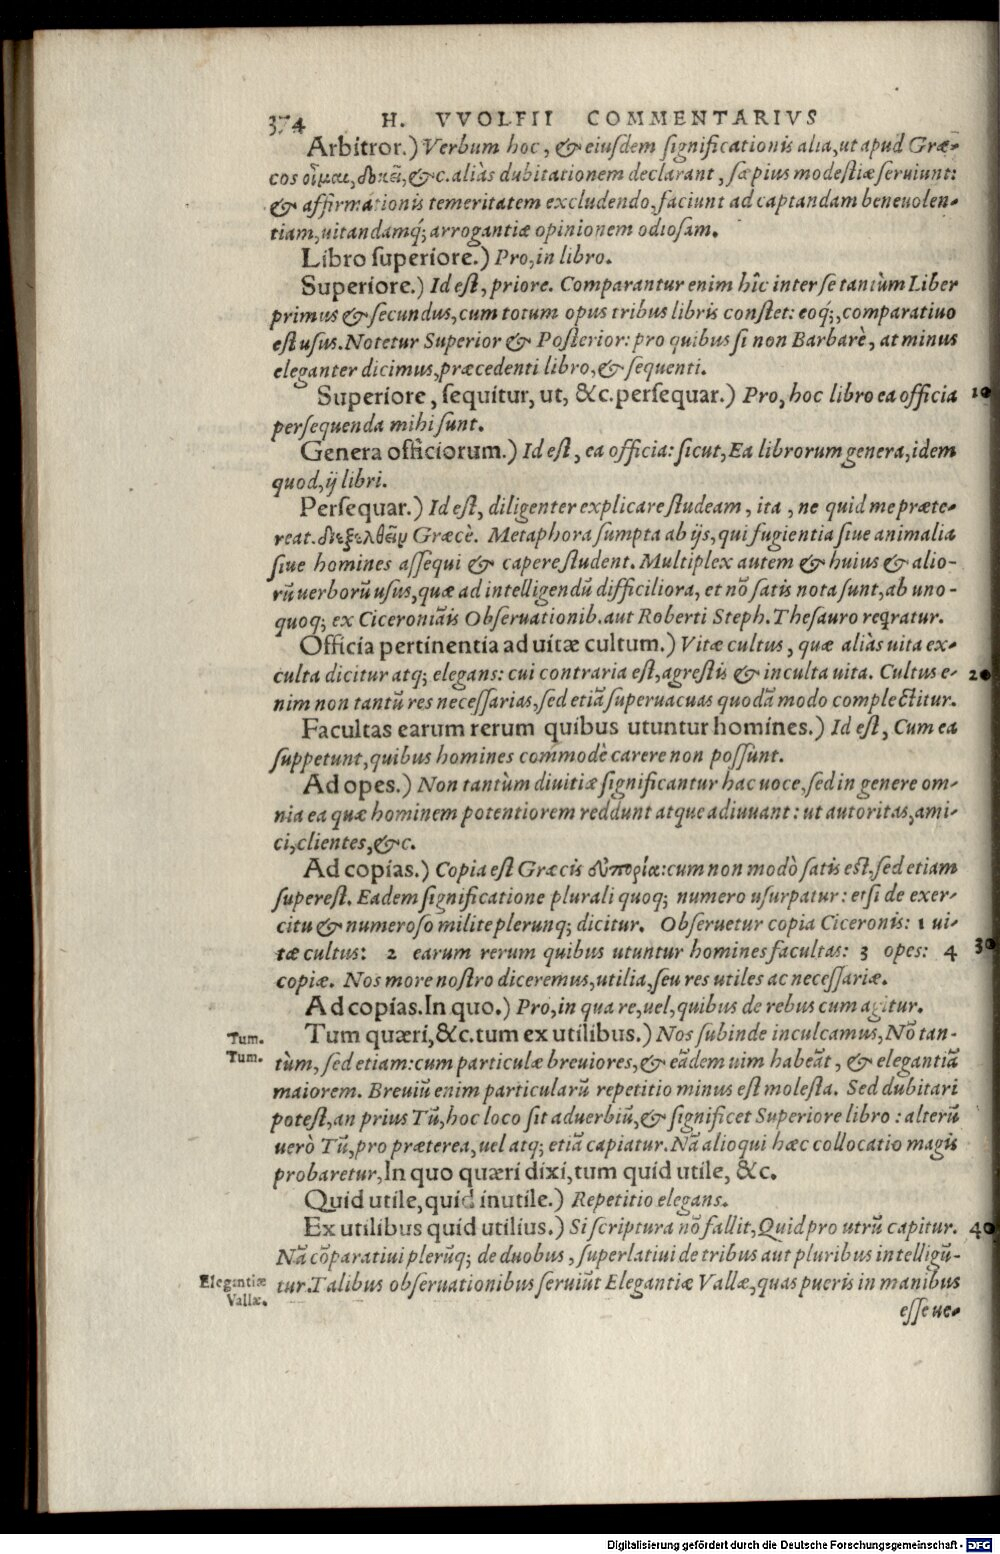 374 H. VVOLFII COMMENTARIVS
Arbitror.) Verbum hoc, & eiusdem significationis alia, ut apud Græ-
cos οἶμαι, δοκεῖ, &c. aliàs dubitationem declarant, sæpius modestiæ seruiunt:
& affirmationis temeritatem excludendo, faciunt ad captandam beneuolen-
tiam, uitandamq́; arrogantiæ opinionem odiosam.
Libro superiore.) Pro, in libro.
Superiore.) Id est, priore. Comparantur enim hîc inter se tantùm Liber
primus & secundus, cum totum opus tribus libris constet: eoq́;, comparatiuo
est usus. Notetur Superior & Posterior: pro quibus si non Barbarè, at minus
eleganter dicimus, præcedenti libro, & sequenti.
Superiore, sequitur, ut, &c. persequar.) Pro, hoc libro ea officia 10
persequenda mihi sunt.
Genera officiorum.) Id est, ea officia: sicut, Ea librorum genera, idem
quod, ij libri.
Persequar.) Id est, diligenter explicare studeam, ita, ne quid me præte-
reat. διεξελθεῖν Græcè. Metaphora sumpta ab ijs, qui fugientia siue animalia
siue homines assequi & capere student. Multiplex autem & huius & alio-
rū uerborū usus, quæ ad intelligendū difficiliora, et nō satis nota sunt, ab uno-
quoq; ex Ciceroniāis Obseruationib. aut Roberti Steph. Thesauro reqratur.
Officia pertinentia ad uitæ cultum.) Vitæ cultus, quæ aliàs uita ex-
culta dicitur atq; elegans: cui contraria est, agrestis & inculta uita. Cultus e- 20
nim non tantū res necessarias, sed etiā superuacuas quodā modo complectitur.
Facultas earum rerum quibus utuntur homines.) Id est, Cum ea
suppetunt, quibus homines commodè carere non possunt.
Ad opes.) Non tantùm diuitiæ significantur hac uoce, sed in genere om-
nia ea quæ hominem potentiorem reddunt atque adiuuant: ut autoritas, ami-
ci, clientes, &c.
Ad copias.) Copia est Græcis εὐπορία: cum non modò satis est, sed etiam
superest. Eadem significatione plurali quoq; numero usurpatur: etsi de exer-
citu & numeroso milite plerunq; dicitur. Obseruetur copia Ciceronis: 1 ui-
tæ cultus: 2 earum rerum quibus utuntur homines facultas: 3 opes: 4 30
copiæ. Nos more nostro diceremus, utilia, seu res utiles ac necessariæ.
Ad copias. In quo.) Pro, in qua re, uel, quibus de rebus cum agitur.
Tum. Tum quæri, &c. tum ex utilibus.) Nos subinde inculcamus, Nō tan-
Tum. tùm, sed etiam: cum particulæ breuiores, & eādem uim habeāt, & elegantiā
maiorem. Breuiū enim particularū repetitio minus est molesta. Sed dubitari
potest, an prius Tū, hoc loco sit aduerbiū, & significet Superiore libro: alterū
uerò Tū, pro præterea, uel atq; etiā capiatur. Nā alioqui hæc collocatio magis
probaretur, In quo quæri dixi, tum quid utile, &c.
Quid utile, quid inutile.) Repetitio elegans.
Ex utilibus quid utilius.) Si scriptura nō fallit, Quid pro utrū capitur. 40
Nā cōparatiui plerūq; de duobus, superlatiui de tribus aut pluribus intelligū-
Elegantiæ Vallæ. tur. Talibus obseruationibus seruiūt Elegantiæ Vallæ, quas pueris in manibus
esse ue-
Digitalisierung gefördert durch die Deutsche Forschungsgemeinschaft - DFG